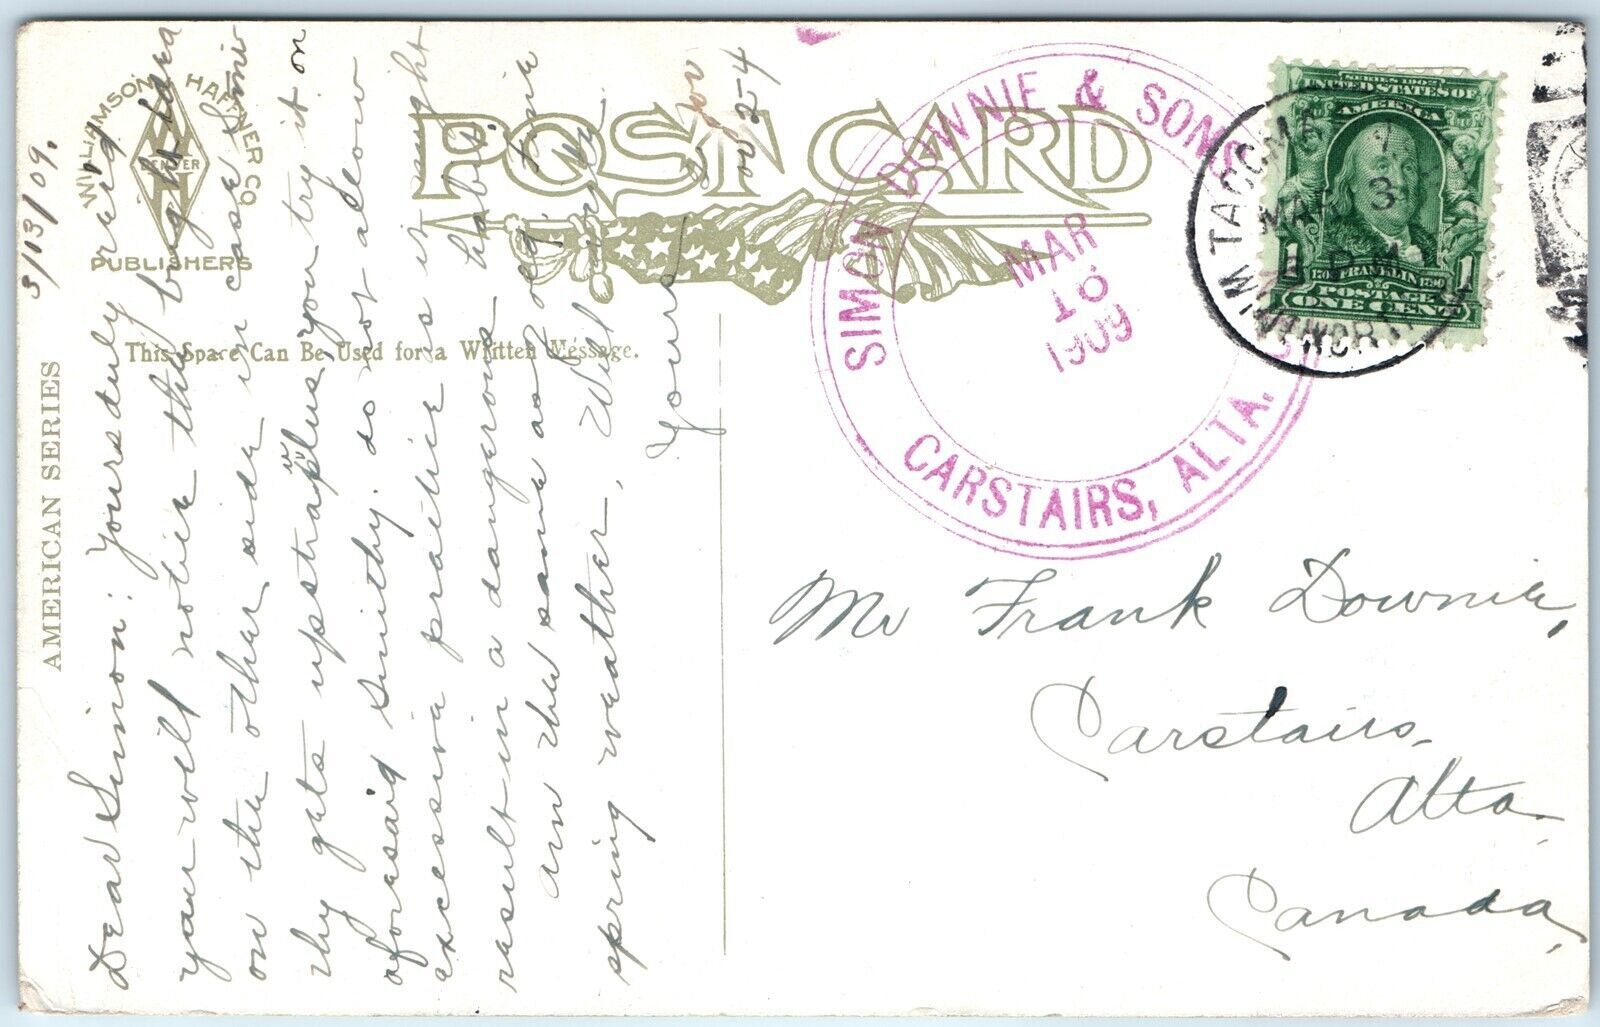 WILLIAMSON HAFFNER CO.
WH
DENVER
PUBLISHERS
AMERICAN SERIES
POST CARD
This Space Can Be Used for a Written Message.
3/13/09.
Dear Simon: Yours duly rec'd
you will notice the bright idea
on the other side in case Smi
thy gets upstraplus you try it on
aforesaid Smithy. do not allow
excessive practice as it might
result in a dangerous habit.
am the same as of
spring weather,
Yours
SIMON DOWNIE & SONS
MAR
16
1909
CARSTAIRS, ALTA.
TACOMA
MAR 3
PM
SERIES 1902
UNITED STATES OF
AMERICA
1 1
FRANKLIN
POSTAGE
ONE CENT
Mr Frank Downie,
Carstairs,
Alta,
Canada,